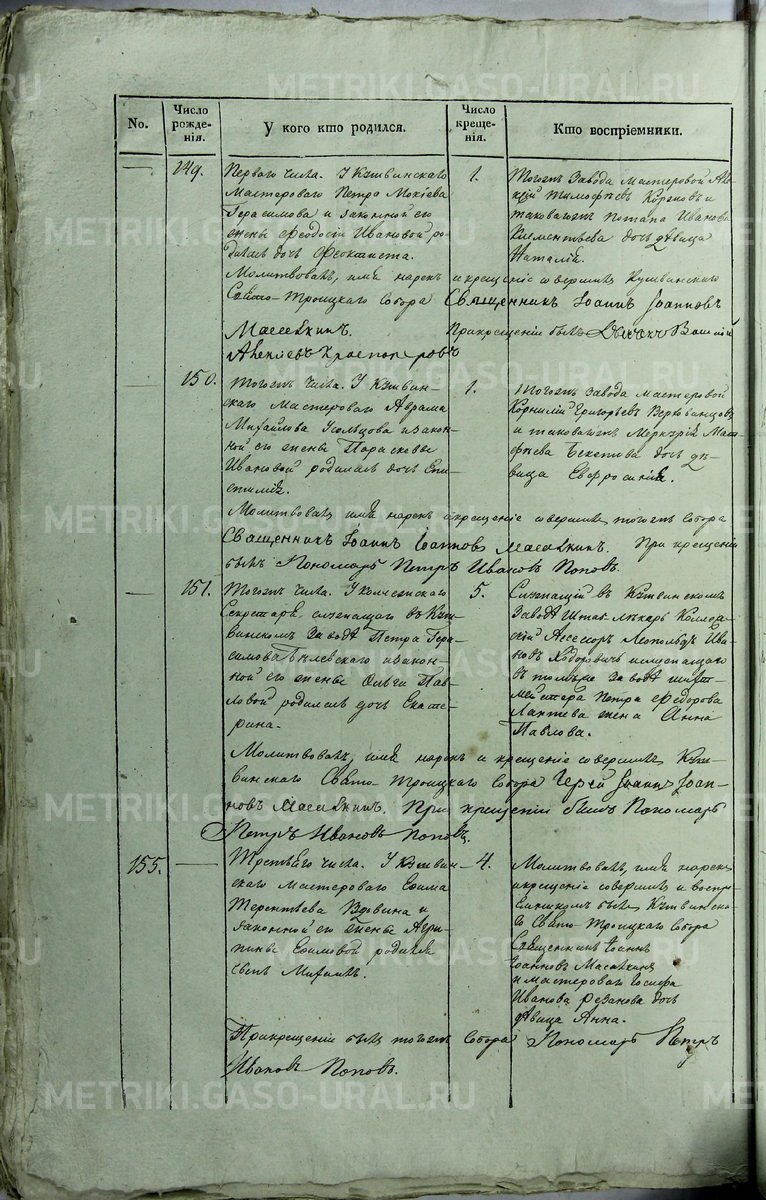 METRIKI.GASO-URAL.RU
No.
Число рожденія.
У кого кто родился.
Число крещенія.
Кто воспріемники.
149.
Перваго числа. У Кушвинскаго
Мастероваго Петра Мокіева
Герасимова и законной его
жены Феодосіи Ивановой ро-
дилась дочь Феоктиста.
1.
Тогожъ Завода Мастеровой
Тимофѣевъ и
таковагожъ Потапа Иванова
Клементьева дочь дѣвица
Наталія.
Молитвовалъ, имя нарекъ и крещеніе совершилъ Кушвинскаго
Свято-Троицкаго Собора Священникъ Іоаннъ Іоанновъ
При крещеніи былъ Дьячекъ
Алексіевъ
150.
Тогожъ числа. У Кушвин-
скаго Мастероваго Аврама
Михайлова и закон-
ной его жены Параскевы
Ивановой родилась дочь Епи-
стимія.
1.
Тогожъ Завода Мастеровой
Корнилій Григорьевъ
и таковагожъ Меркурія Мат-
фѣева дочь дѣ-
вица Евфросинія.
Молитвовалъ имя нарекъ и крещеніе совершилъ тогожъ Собора
Священникъ Іоаннъ Іоанновъ При крещеніи
былъ Пономарь Петръ Ивановъ Поповъ.
151.
Тогожъ числа. У
Секретаря, служащаго въ Куш-
винскомъ Заводѣ Петра Гера-
симова и закон-
ной его жены Ольги Пав-
ловой родилась дочь Екате-
рина.
5.
Служащій въ Кушвинскомъ
Заводѣ Штаб-лѣкарь Коллеж-
скій Асессоръ Леопольдъ Ива-
новъ и служащаго
въ томъже Заводѣ Шихт-
мейстера Петра Федорова
Лаптева жена Анна
Павлова.
Молитвовалъ, имя нарекъ и крещеніе совершилъ Куш-
винскаго Свято-Троицкаго Собора Іерей Іоаннъ Іоан-
новъ При крещеніи былъ Пономарь
Петръ Ивановъ Поповъ.
155.
Третьяго числа. У Кушвин-
скаго Мастероваго Ефима
Терентьева Вдовина и
законной его жены Агри-
пины Ефимовой родился
сынъ Михаилъ.
4.
Молитвовалъ, имя нарекъ
и крещеніе совершилъ и воспрі-
емникомъ былъ Кушвинска-
го Свято-Троицкаго Собора
Священникъ Іоаннъ
Іоанновъ
и мастероваго Іосифа
Иванова дочь
дѣвица Анна.
При крещеніи былъ тогожъ Собора Пономарь Петръ
Ивановъ Поповъ.